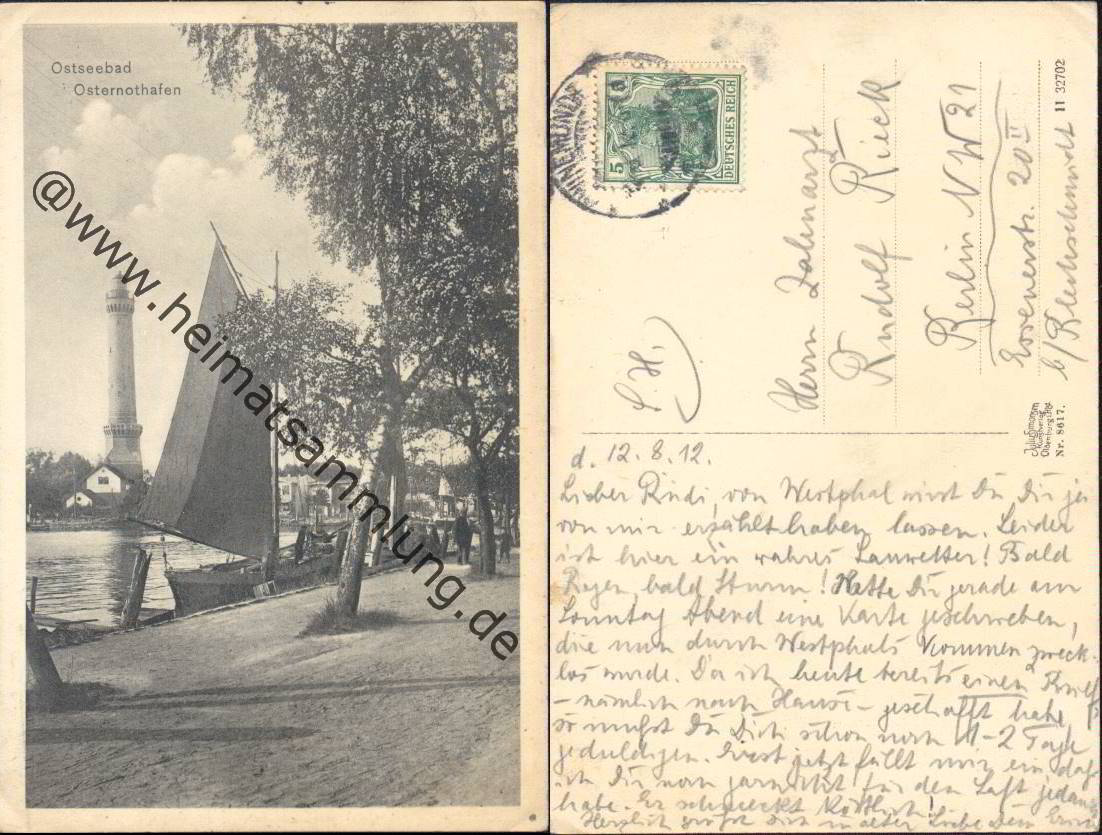 Ostseebad
Osternothafen
@www.heimatsammlung.de
5
DEUTSCHES REICH
Herrn Zahnarzt
Rudolf Rieck
Berlin NW 21
20 II
b/
11 32702
Nr. 8617.
d. 12.8.12.
Lieber Rudi, von Westphal wirst Du Dir ja
von mir erzählt haben lassen. Leider
ist hier ein wahres Sauwetter! Bald
Regen, bald Sturm! Hatte Dir gerade am
Sonntag Abend eine Karte geschrieben,
die nun durch Westphals Kommen zweck-
los wurde. Da ich heute bereits einen
– nämlich nach Hause – geschafft habe,
so mußt Du Dich schon noch 1–2 Tage
geduldigen. Erst jetzt fällt mir ein daß
ich Dir noch garnicht für den Saft
habe. Er schmeckt köstlich!
Herzlich grüßt Dich in alter Liebe Dein